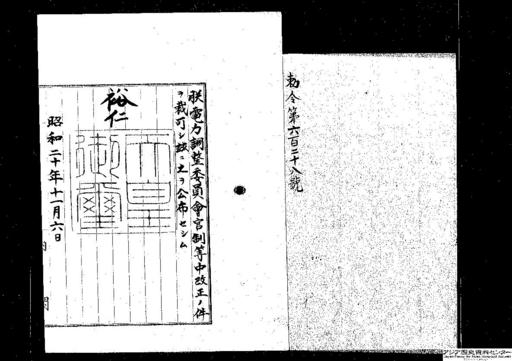 勅令第六百二十八號
朕電力調整委員會官制等中改正ノ件
ヲ裁可シ茲ニ之ヲ公布セシム
裕仁
天皇
御璽
昭和二十年十一月六日
内閣
アジア歴史資料センター
Japan Center for Asian Historical Records